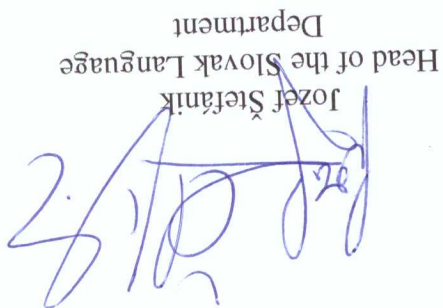 Jozef Štefánik
Head of the Slovak Language
Department